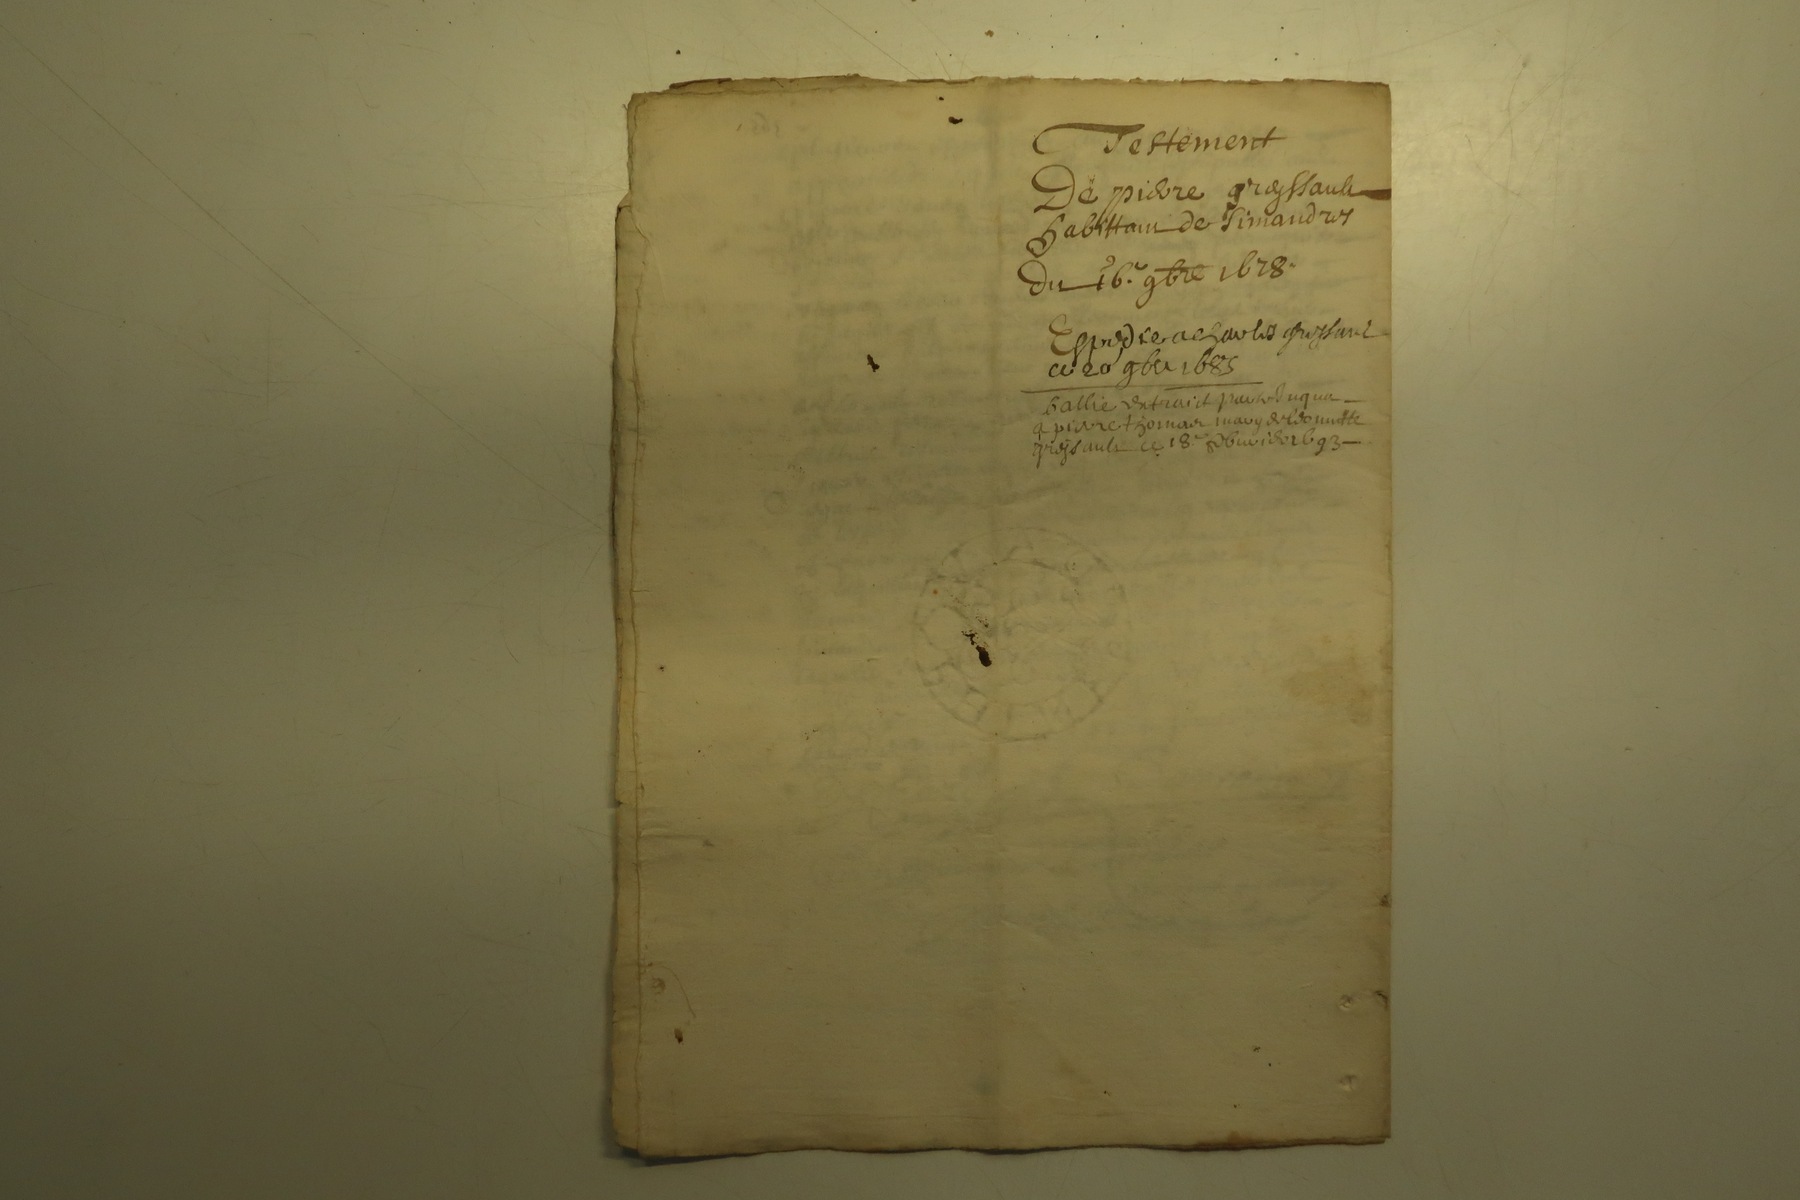 Testement
De pierre greyssault
habittant de Simandres
du 16.e 9bre 1678.
Espediee a charles greyssault
ce 20 9bre 1685
ballie extraict par
a pierre thomas mary de
greyssault ce 18.e 1693